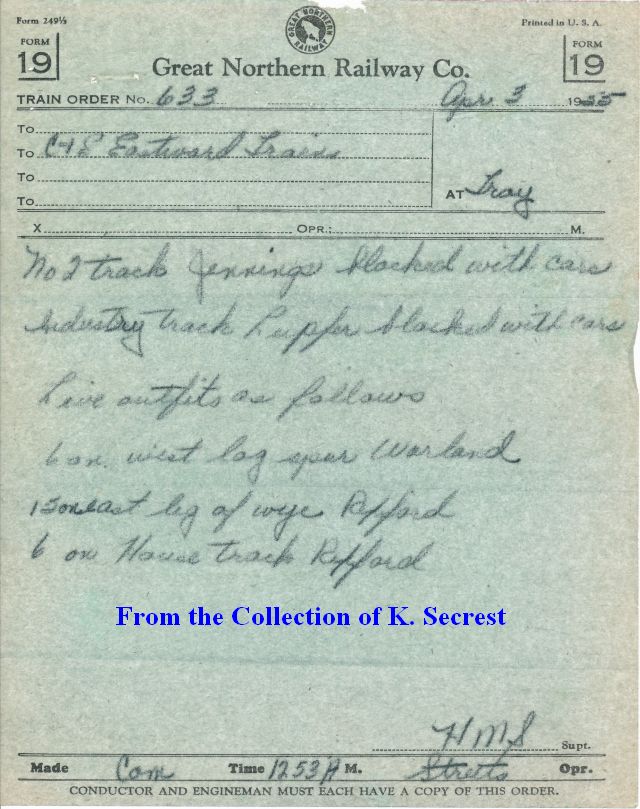 Form 249½
Printed in U. S. A.
GREAT NORTHERN RAILWAY
FORM 19
FORM 19
Great Northern Railway Co.
TRAIN ORDER No. 633 Apr 3 1955
To
To C+E Eastward Trains
To
To
AT Troy
X OPR.: M.
No 2 track Jennings blocked with cars
Industry track Lupfer blocked with cars
Live outfits as follows
6 on west leg spur Warland
13 on east leg of wye Rexford
6 on House track Rexford
From the Collection of K. Secrest
HMS Supt.
Made Com Time 1253 A M. Opr.
CONDUCTOR AND ENGINEMAN MUST EACH HAVE A COPY OF THIS ORDER.